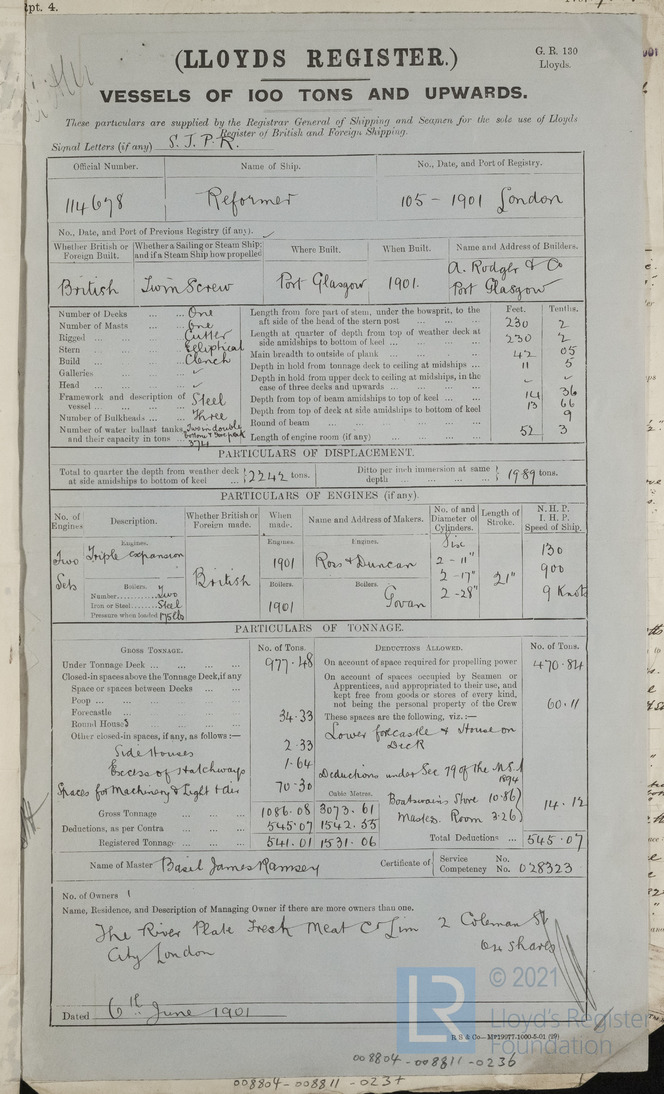 pt. 4.
(LLOYDS REGISTER.)
G. R. 130
Lloyds.
VESSELS OF 100 TONS AND UPWARDS.
These particulars are supplied by the Registrar General of Shipping and Seamen for the sole use of Lloyds
Register of British and Foreign Shipping.
Signal Letters (if any) S. J. P. R.
Official Number. Name of Ship. No., Date, and Port of Registry.
114678 Reformer 105 – 1901 London
No., Date, and Port of Previous Registry (if any).
Whether British or Foreign Built. Whether a Sailing or Steam Ship; and if a Steam Ship how propelled Where Built. When Built. Name and Address of Builders.
British Twin Screw Port Glasgow 1901. A. Rodger & Co
Port Glasgow
Number of Decks ... ... One
Number of Masts ... ... One
Rigged ... Cutter
Stern ... Elliptical
Build ... Clench
Galleries ... ✓
Head ... ✓
Framework and description of vessel ... Steel
Number of Bulkheads ... Three
Number of water ballast tanks, and their capacity in tons ... Two in double bottom & fore peak
374
Feet. Tenths.
Length from fore part of stem, under the bowsprit, to the aft side of the head of the stern post 230 2
Length at quarter of depth from top of weather deck at side amidships to bottom of keel 230 2
Main breadth to outside of plank 42 05
Depth in hold from tonnage deck to ceiling at midships 11 5
Depth in hold from upper deck to ceiling at midships, in the case of three decks and upwards ✓ ✓
Depth from top of beam amidships to top of keel 14 36
Depth from top of deck at side amidships to bottom of keel 13 66
Round of beam 9
Length of engine room (if any) 52 3
PARTICULARS OF DISPLACEMENT.
Total to quarter the depth from weather deck at side amidships to bottom of keel 2242 tons. Ditto per inch immersion at same depth 1989 tons.
PARTICULARS OF ENGINES (if any).
No. of Engines Description. Whether British or Foreign made. When made. Name and Address of Makers. No. of and Diameter of Cylinders. Length of Stroke. N. H. P. I. H. P. Speed of Ship.
Engines. Engines. Engines. Six
Two Sets Triple expansion British 1901 Ross & Duncan 2 – 11" 21" 130
2 – 17" 900
2 – 28" 9 Knots
Boilers. Boilers. Boilers.
Number Two
Iron or Steel Steel
Pressure when loaded 175 lbs 1901 Govan
PARTICULARS OF TONNAGE.
GROSS TONNAGE. No. of Tons. DEDUCTIONS ALLOWED. No. of Tons.
Under Tonnage Deck 977.48
On account of space required for propelling power 470.84
Closed-in spaces above the Tonnage Deck, if any
Space or spaces between Decks
Poop
Forecastle 34.33
Round Houses
Other closed-in spaces, if any, as follows:—
Side Houses 2.33
Excess of Hatchways 1.64
Spaces for Machinery & Light & Air 70.30
Cubic Metres.
Gross Tonnage 1086.08 3073.61
Deductions, as per Contra 545.07 1542.55
Registered Tonnage 541.01 1531.06
On account of spaces occupied by Seamen or Apprentices, and appropriated to their use, and kept free from goods or stores of every kind, not being the personal property of the Crew 60.11
These spaces are the following, viz.:—
Lower forecastle & House on Deck
Deductions under Sec 79 of the M.S.A 1894
Boatswains Store 10.86
Masters Room 3.26 14.12
Total Deductions 545.07
Name of Master Basil James Ramsey Certificate of Service No.
Competency No. 028323
No. of Owners 1
Name, Residence, and Description of Managing Owner if there are more owners than one.
The River Plate Fresh Meat Co Lim 2 Coleman St
City London 64 shares
Dated 6th June 1901
© 2021
LR Lloyd's Register
Foundation
008804-008811-0236
008804-008811-0237